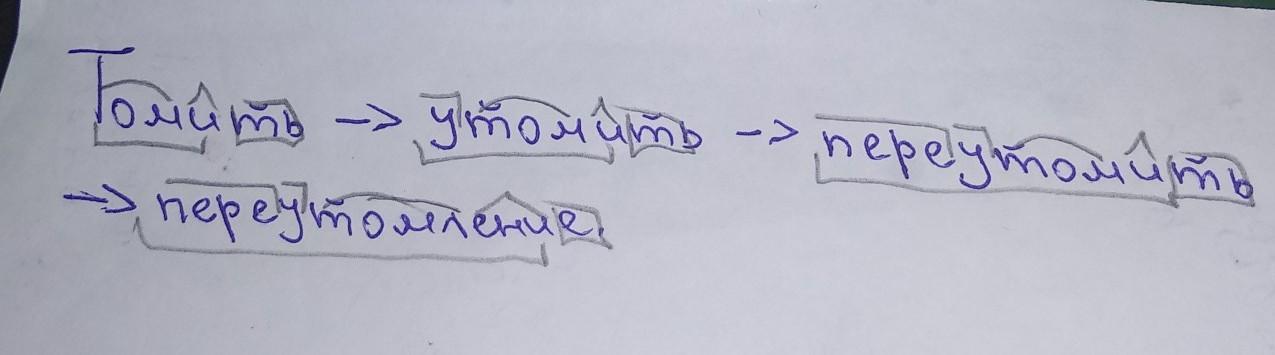 Томить -> утомить -> переутомить
-> переутомление.